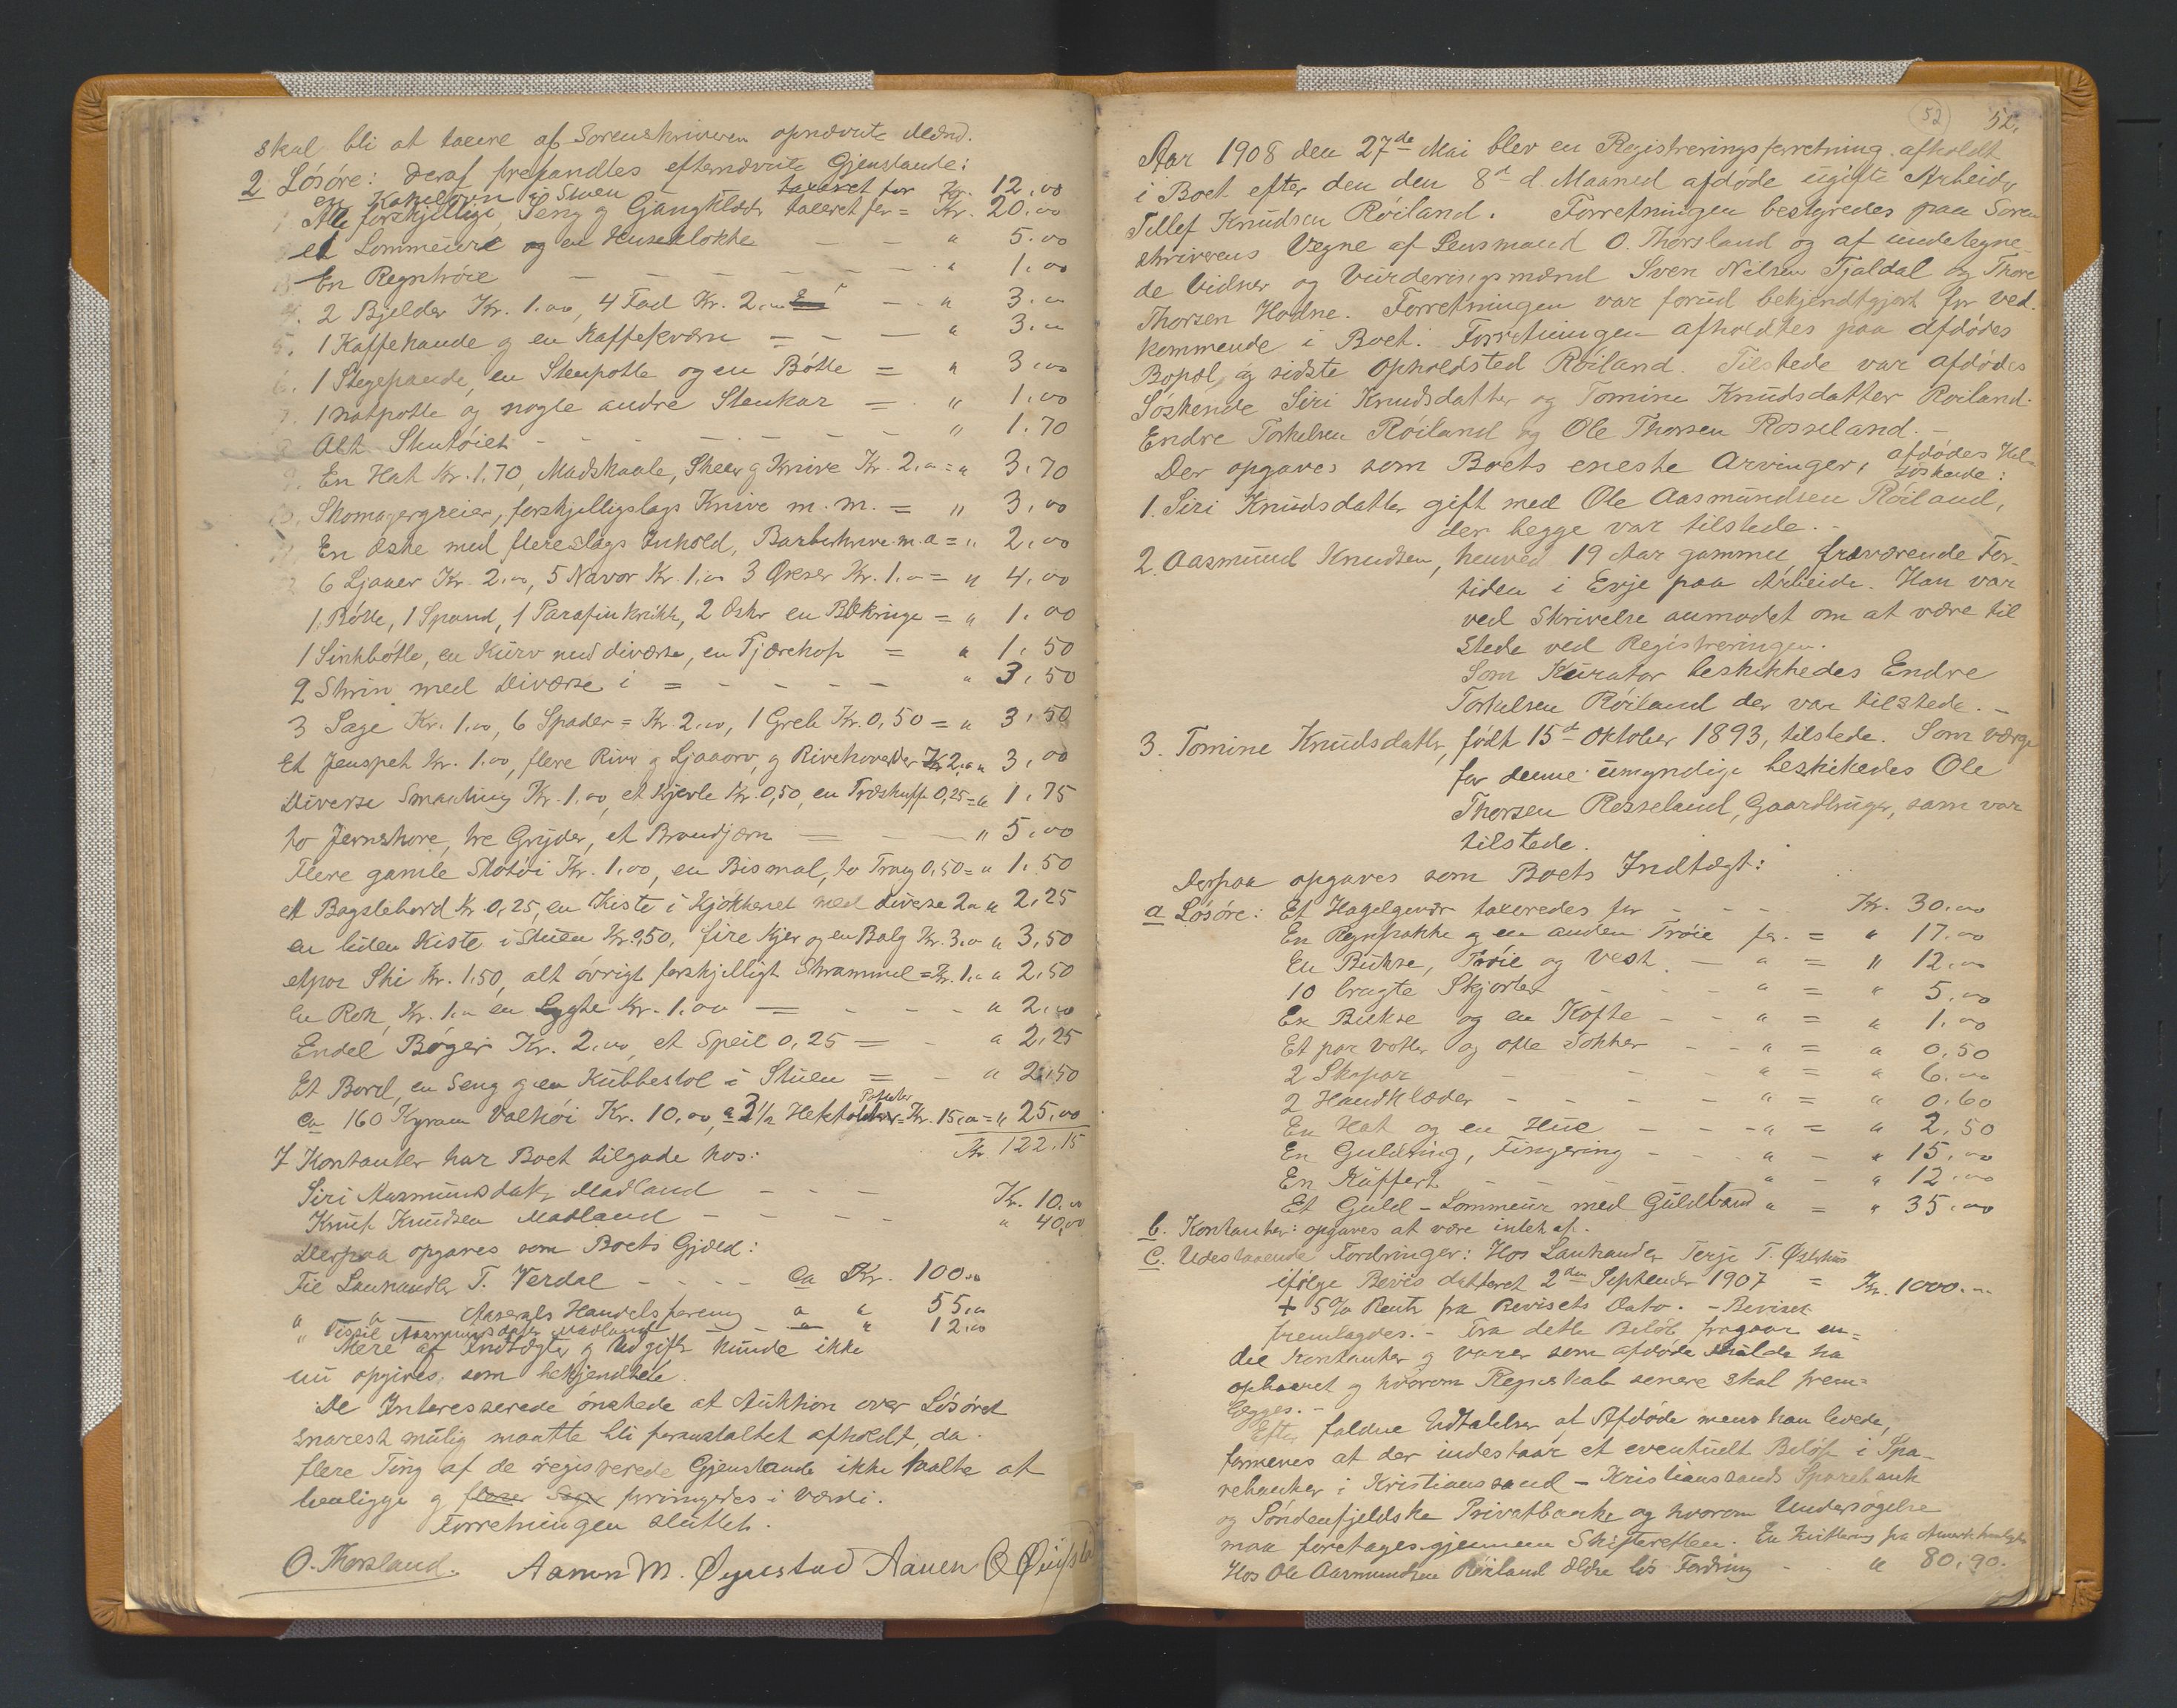 skal bli at taxere af Sorenskriveren opnævnte Mænd.
2 Løsøre: Deraf forefandtes efternævnte Gjenstande:
en Kakelovn i Stuen taxeret for Kr. 12,00
1. Alle forskjellige Seng og Gangklæder taxeret for = Kr. 20,00
et Lommeur og en Huseklokke — — " 5.00
En Regntrøie — — — — — " 1,00
4. 2 Bjelder Kr. 1.00, 4 Fad Kr. 2,00 — " 3,00
5. 1 Kaffekande og en Kaffekværn = — — " 3,00
6. 1 Stegepande, en Stenpotte og en Bøtte = " 3,00
7. 1 natpotte og nogle andre Stenkar = " 1,00
8. Alt Stentøiet — — — — — " 1.70
9. En Hat Kr. 1.70, Madskaale, Skeer og Knive Kr. 2,00 = " 3,70
10. Skomagergreier, forskjelligslags Knive m. m. = " 3,00
En Æske med flereslags Inhold, Barberknive m. a = " 2,00
6 Ljaaer Kr. 2,00, 5 Navor Kr. 1,00 3 Økser Kr. 1,00 = " 4,00
1 Bøtte, 1 Spand, 1 Parafinkrukke, 2 Osker en = " 1.00
1 Sinkbøtte, en Kurv med diverse, en Tjærekop = " 1,50
2 Skrin med Diverse i = — — — " 3,50
3 Sage Kr. 1.00, 6 Spader = Kr. 2.00, 1 Greb Kr. 0,50 = " 3,50
Et Jernspet Kr. 1.00, flere River og Ljaaorv, og Rivehoveder Kr 2,00 " 3,00
Diverse Smaating Kr. 1,00, et Kjevle Kr. 0,50, en Træskuffe 0,25 = " 1,75
to Jernskore, tre Gryder, et Brandjærn = — — " 5,00
Flere gamle Kr. 1.00, en Bismal, to Traug 0,50 = " 1.50
et Bagstebord Kr 0,25, en Kiste i Kjøkkenet med diverse 2,00 " 2,25
en liden Kiste i Stuen Kr. 0,50, fire Kjer og en Balg Kr. 3,00 " 3,50
etpar Ski Kr. 1.50, alt øvrigt forskjelligt Skrammel = Kr. 1,00 " 2,50
En Rok, Kr. 1,00 en Lygte Kr. 1.00 = — — — " 2,00
Endel Bøger Kr. 2.00, et Speil 0,25 = — " 2,25
Et Bord, en Seng og en Kubbestol i Stuen = — " 2,50
Poteter
Ca 160 Kgram Valhøi Kr. 10.00, a 3 1/2 Hektoliter = Kr. 15,00 = " 25,00
Kr 122.15
I Kontanter har Boet tilgode hos:
Siri Aasmundsdatr Madland — — — Kr. 10,00
Knut Knudsen Madland — — — " 40,00
Derpaa opgaves som Boets Gjæld:
Til Lanhandler T. Verdal — — — Ca Kr. 100,00
" " Aaserals Handelsforening " " 55,00
" Tessil Aasmundsdater Madland — " 12,00
Mere af Indtægter og Udgifter kunde ikke
nu opgives, som bekjendtede.
De Interesserede ønskede at Auktion over Løsøret
snarest mulig maatte bli foranstaltet afholdt, da
flere Ting af de registrerede Gjenstande ikke taalte at
henligge og forringedes i Værdi.
Forretningen sluttet.
O. Thorsland. Aanen M. Øynestad Aanen O

52 52.
Aar 1908 den 27de Mai blev en Registreringsforretning afholdt
i Boet efter den den 8de d. Maaned afdøde ugifte Arbeider
Tellef Knudsen Røiland. Forretningen bestyredes paa Soren-
skriverens Vegne af Lensmand O. Thorsland og af undetegne-
de Vidner og Vurderingsmænd Sven Nilsen Fjaldal og Thore
Thorsen Hodne. Forretningen var forud bekjendtgjort for ved-
kommende i Boet. Forretningen afholdtes paa afdødes
Bopæl og sidste Opholdsted Røiland. Tilstede var afdødes
Søskende Siri Knudsdatter og Tomine Knudsdatter Røiland.
Endre Torkelsen Røiland og Ole Thorsen Rosseland. —
Der opgaves som Boets eneste Arvinger, afdødes Hel-
søskende:
1. Siri Knudsdatter gift med Ole Aasmundsen Røiland,
der begge var tilstede. —
2. Aasmund Knudsen, henved 19 Aar gammel fraværende For-
tiden i Evje paa Arbeide. Han var
ved Skrivelse anmodet om at være til
stede ved Registreringen.
Som Kurator beskikkedes Endre
Torkelsen Røiland der var tilstede. —
3. Tomine Knudsdatter, født 15de Oktober 1893, tilstede. Som værge
for denne umyndige beskikedes Ole
Thorsen Rosseland, Gaardbruger, som var
tilstede.
Derpaa opgaves som Boets Indtægt:
a Løsøre: Et Hagelgevær taxeredes for — — — Kr. 30.00
En Regnfrakke og en anden Trøie for = " 17.00
En Bukse, Trøie og Vest. — " = " 12,00
10 brugte Skjorter — — — " = " 5,00
En Bukse og en Kofte — — " = " 1.00
Et par Votter og otte Sokker — — " = " 0,50
2 Skapar — — — " = " 6.00
2 Haandklæder — — — — " = " 0,60
En Hat og en Hue — — — " = " 2,50
En Guldring, Fingering — — " — " 15,00
En Kuffert — — — — " — " 12,00
Et Guld-Lommeur med Guldbaand " = " 35,00
b. Kontanter: opgaves at være intet af.
c. Udestaaende Fordringer: Hos Lanhandler Terje T. Østerhus
ifølge Bevis datteret 2den September 1907 = Kr. 1000.—
+ 5% Rente fra Bevisets Dato. — Beviset
fremlagdes. — Fra dette Beløb fragaar en-
del Kontanter og Varer som afdøde skulde ha
opbaaret og hvorom Regnskab senere skal frem-
lægges. —
Efter faldne Udtalelser af Afdøde mens han levede,
formenes at der indestaar et eventuelt Beløb i Spa-
rebanker i Kristianssand — Kristianssands Sparebank
og Søndenfjeldske Privatbanke og hvorom Undersøgelse
maa foretages gjennem Skifteretten. En Kvittering fra
Hos Ole Aasmundsen Røiland ældre løs Fordring — " 80,90.